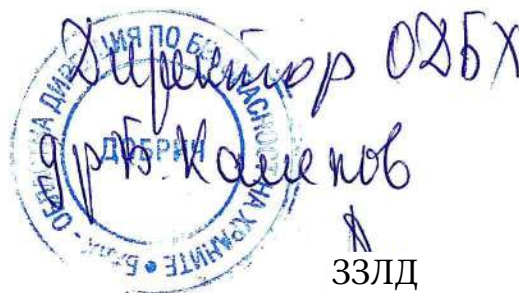 Директор ОДБХ
др Б. Каменов
БАБХ - ОБЛАСТНА ДИРЕКЦИЯ ПО БЕЗОПАСНОСТ НА ХРАНИТЕ •
ДОБРИЧ
ЗЗЛД